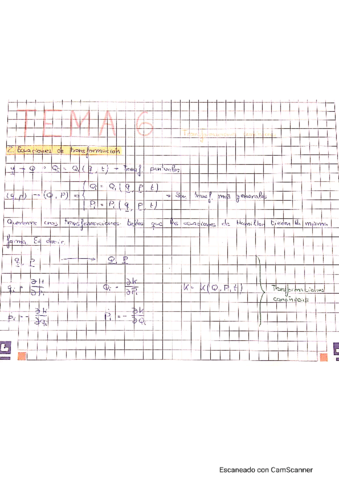 TEMA 6
2. Ecuaciones de transformación
q → Q = Q_i = Q_i (q, t) → Transf. puntuales
(q, p) → (Q, P) = { Q_i = Q_i (q, p, t)
P_i = P_i (q, p, t) → Son transf. más generales
Queremos unas transformaciones tales que las ecuaciones de Hamilton tienen la misma
forma. Es decir:
q, p → Q, P
q_i = ∂H/∂p_i Q_i = ∂K/∂P_i K = K(Q, P, t) } Transformaciones canónicas
p_i = - ∂H/∂q_i P_i = - ∂K/∂Q_i
Escaneado con CamScanner